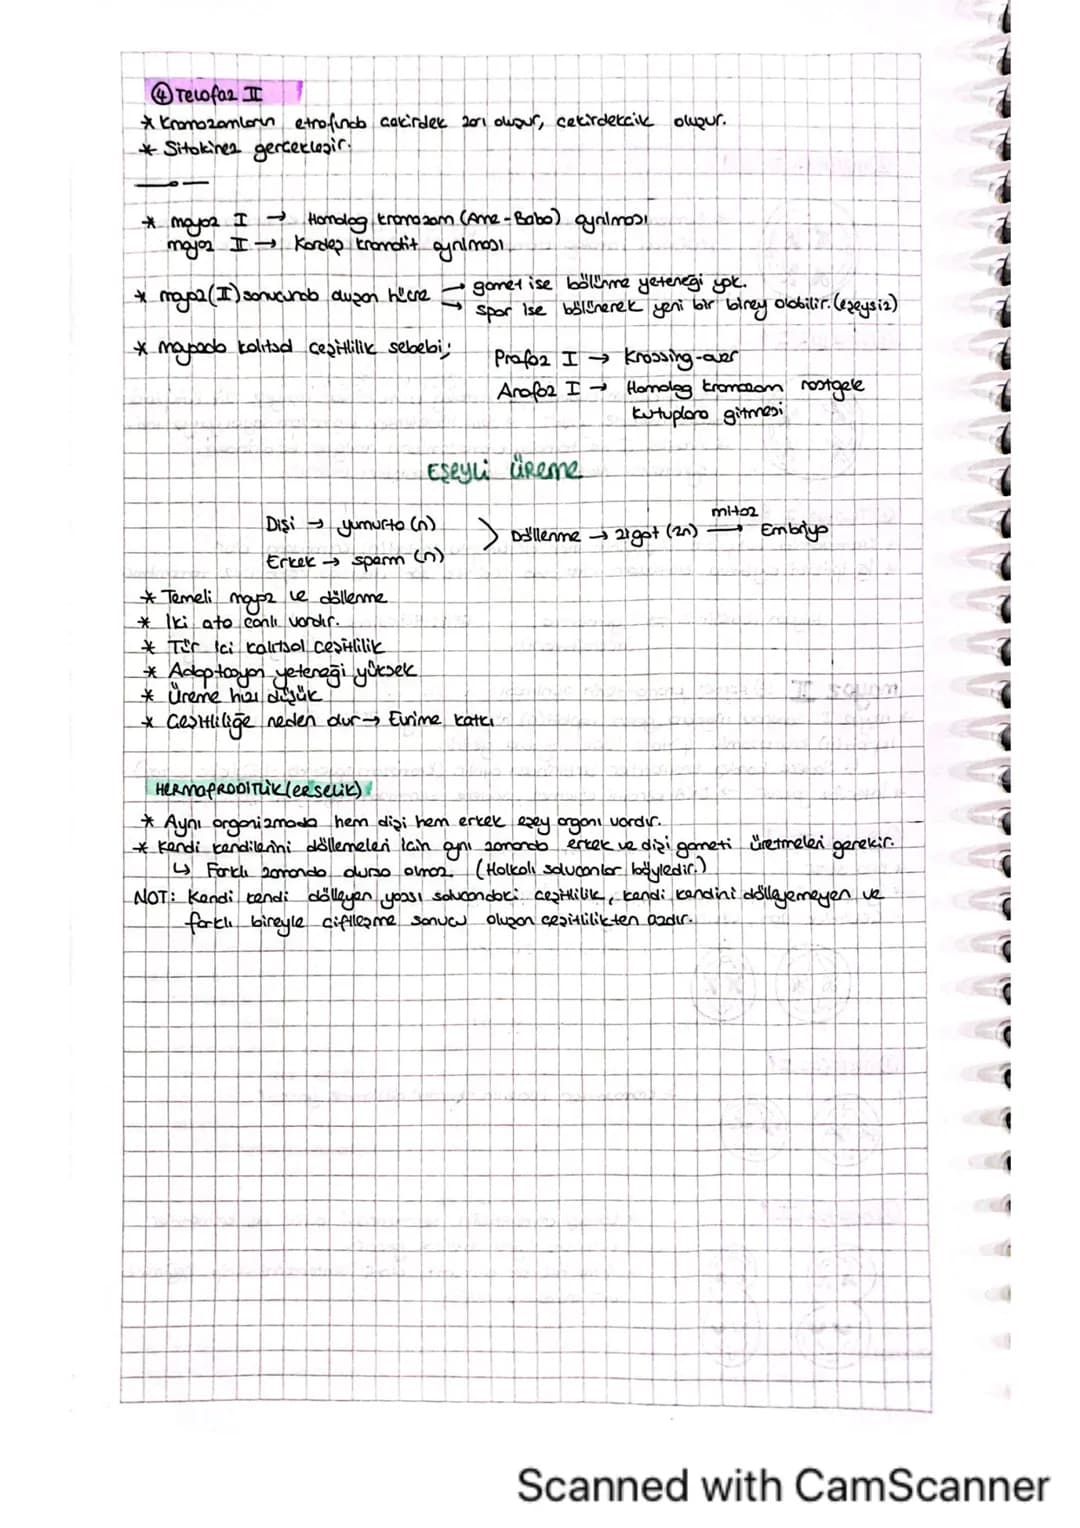 ④ Telofaz II
* Kromozomların etrafında çekirdek zarı oluşur, çekirdekcik oluşur.
* Sitokinez gerçekleşir.
* mayoz I → Homolog kromozom (Ane-Baba) ayrılması
mayoz II → Kardeş kromatit ayrılması
* mayoz(II) sonucunda oluşan hücre → gamet ise bölünme yeteneği yok.
→ spor ise bölünerek yeni bir birey olabilir. (eşeysiz)
* mayozda kalıtsal çeşitlilik sebebi;
Profaz I → Krossing-over
Anafaz I → Homolog kromozom rastgele
kutuplara gitmesi
Eşeyli Üreme
Dişi → yumurta (n)
Erkek → sperm (n)
> Döllenme → zigot (2n) mitoz → Embriyo
* Temeli mayoz ve döllenme
* İki ata canlı vardır.
* Tür içi kalıtsal çeşitlilik
* Adaptasyon yeteneği yüksek
* Üreme hızı düşük
* Çeşitliliğe neden olur → Evrime katkı
HERMAFRODİTLİK (erselik)
* Aynı organizmada hem dişi hem erkek eşey organı vardır.
* Kendi kendilerini döllemeleri için aynı zamanda erkek ve dişi gameti üretmeleri gerekir.
↳ Farklı zamanda olursa olmaz (Halkalı solucanlar böyledir.)
NOT: Kendi kendi dölleyen yassı solucandaki çeşitlilik, kendi kendini dölleyemeyen ve
farklı bireyle çiftleşme sonucu oluşan çeşitlilikten azdır.
Scanned with CamScanner